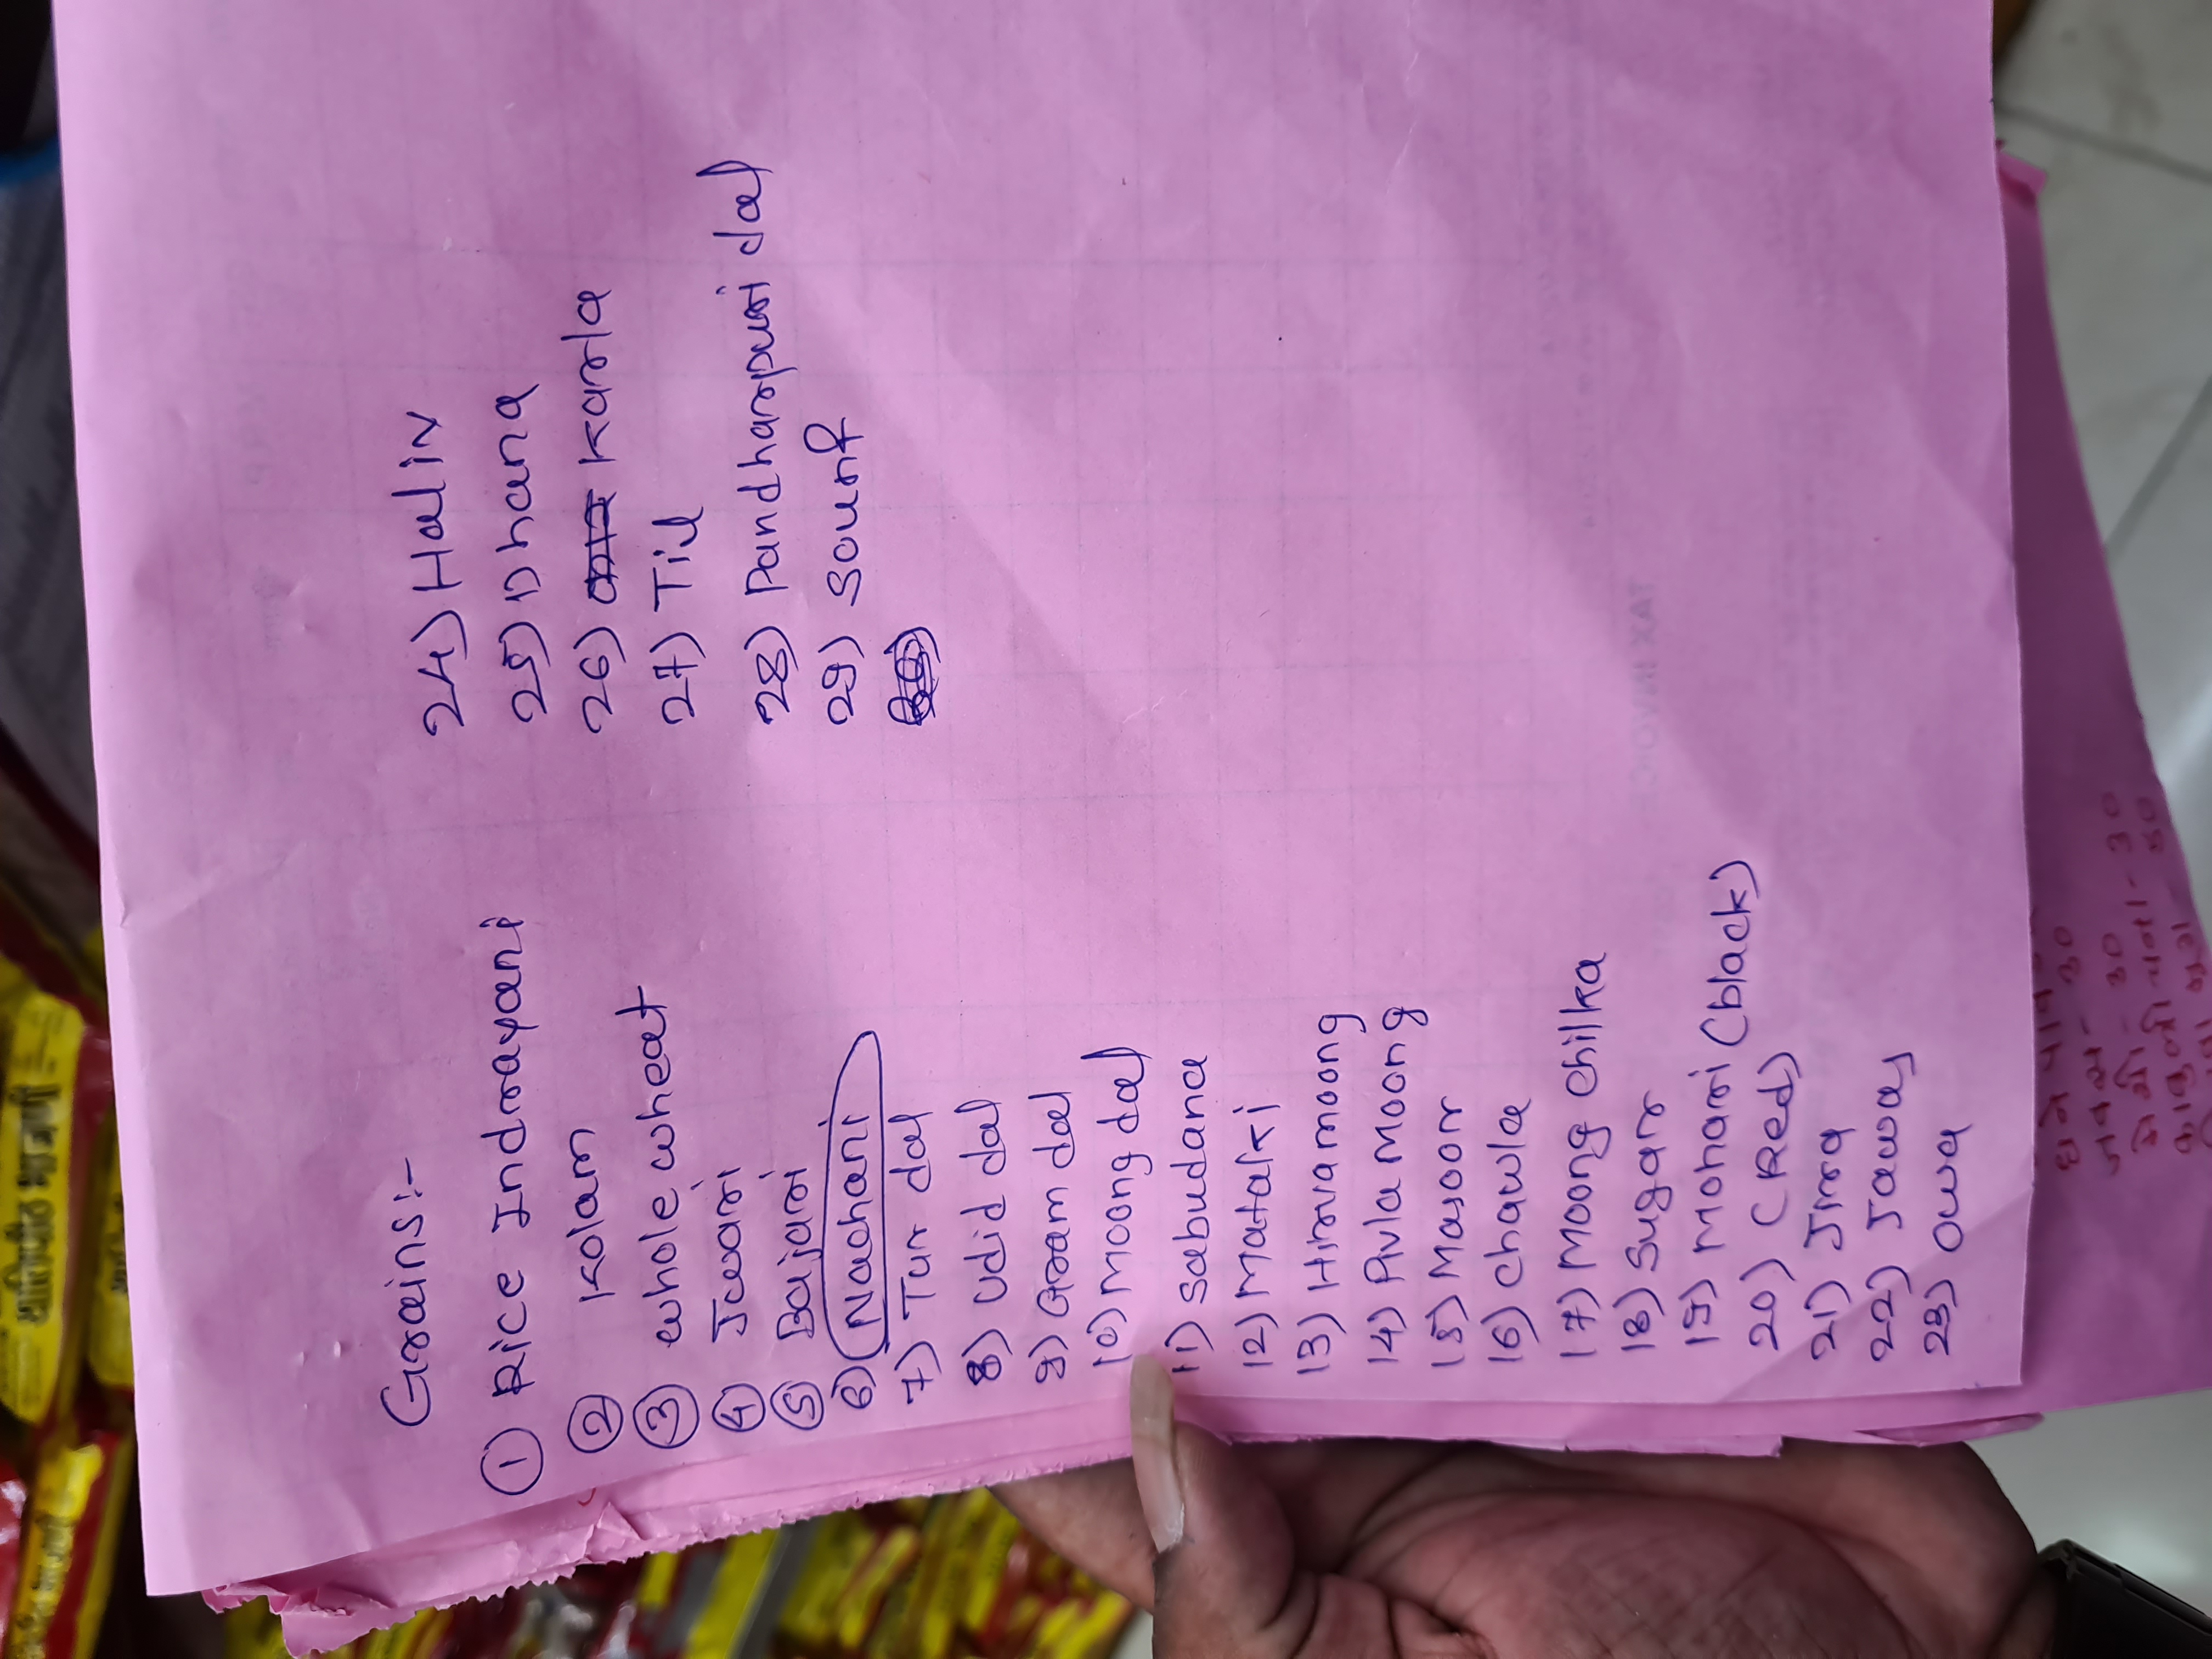 थालिपीठ भाजणी
Grains:-
1 Rice Indrayani
2 Kolam
3 whole wheat
4 Jwari
5 Bajari
6) Nachani
7) Tur dal
8) Udid dal
9) Gram dal
10) Moong dal
11) Sabudana
12) Mataki
13) Hirva moong
14) Pivla Moong
15) Masoor
16) chawla
17) Moong chilka
18) Sugar
19) Mohari (black)
20) (Red)
21) Jira
22) Jawas
23) Owa
24) Haliv
25) Dhana
26) Karla
27) Til
28) Pandharpuri dal
29) Sounf
TAX INVOICE
धने
जवस - 30
मेथी - 30
काबुली चना - 30
मुग 50